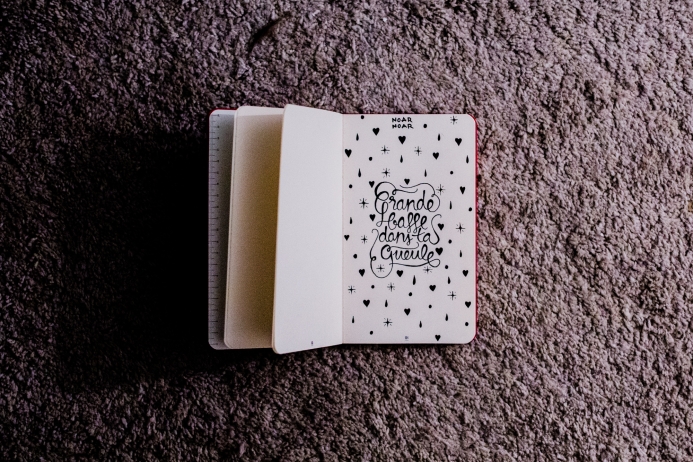 NOAR
NOAR
Grande
baffe
dans ta
Gueule